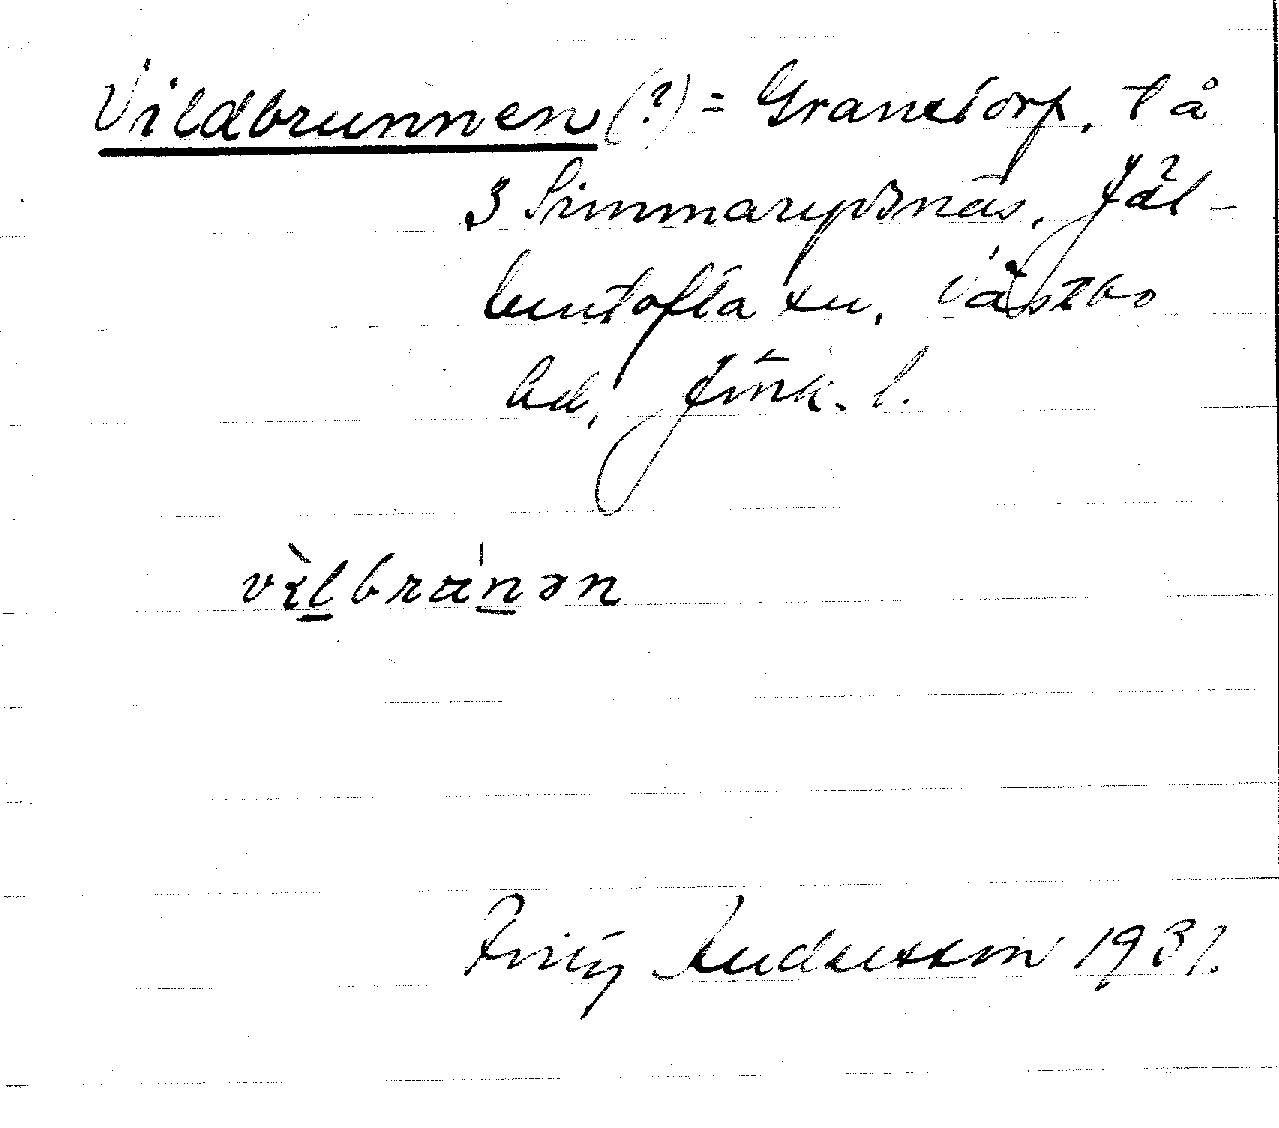 Vildbrunnen (?) = Granstorp, t å
3 Simmarydsnäs, Jäl-
luntofta sn, Västbo
hd, Jönk. l.
vɪ̀lbra'nən
Andersson 1931.